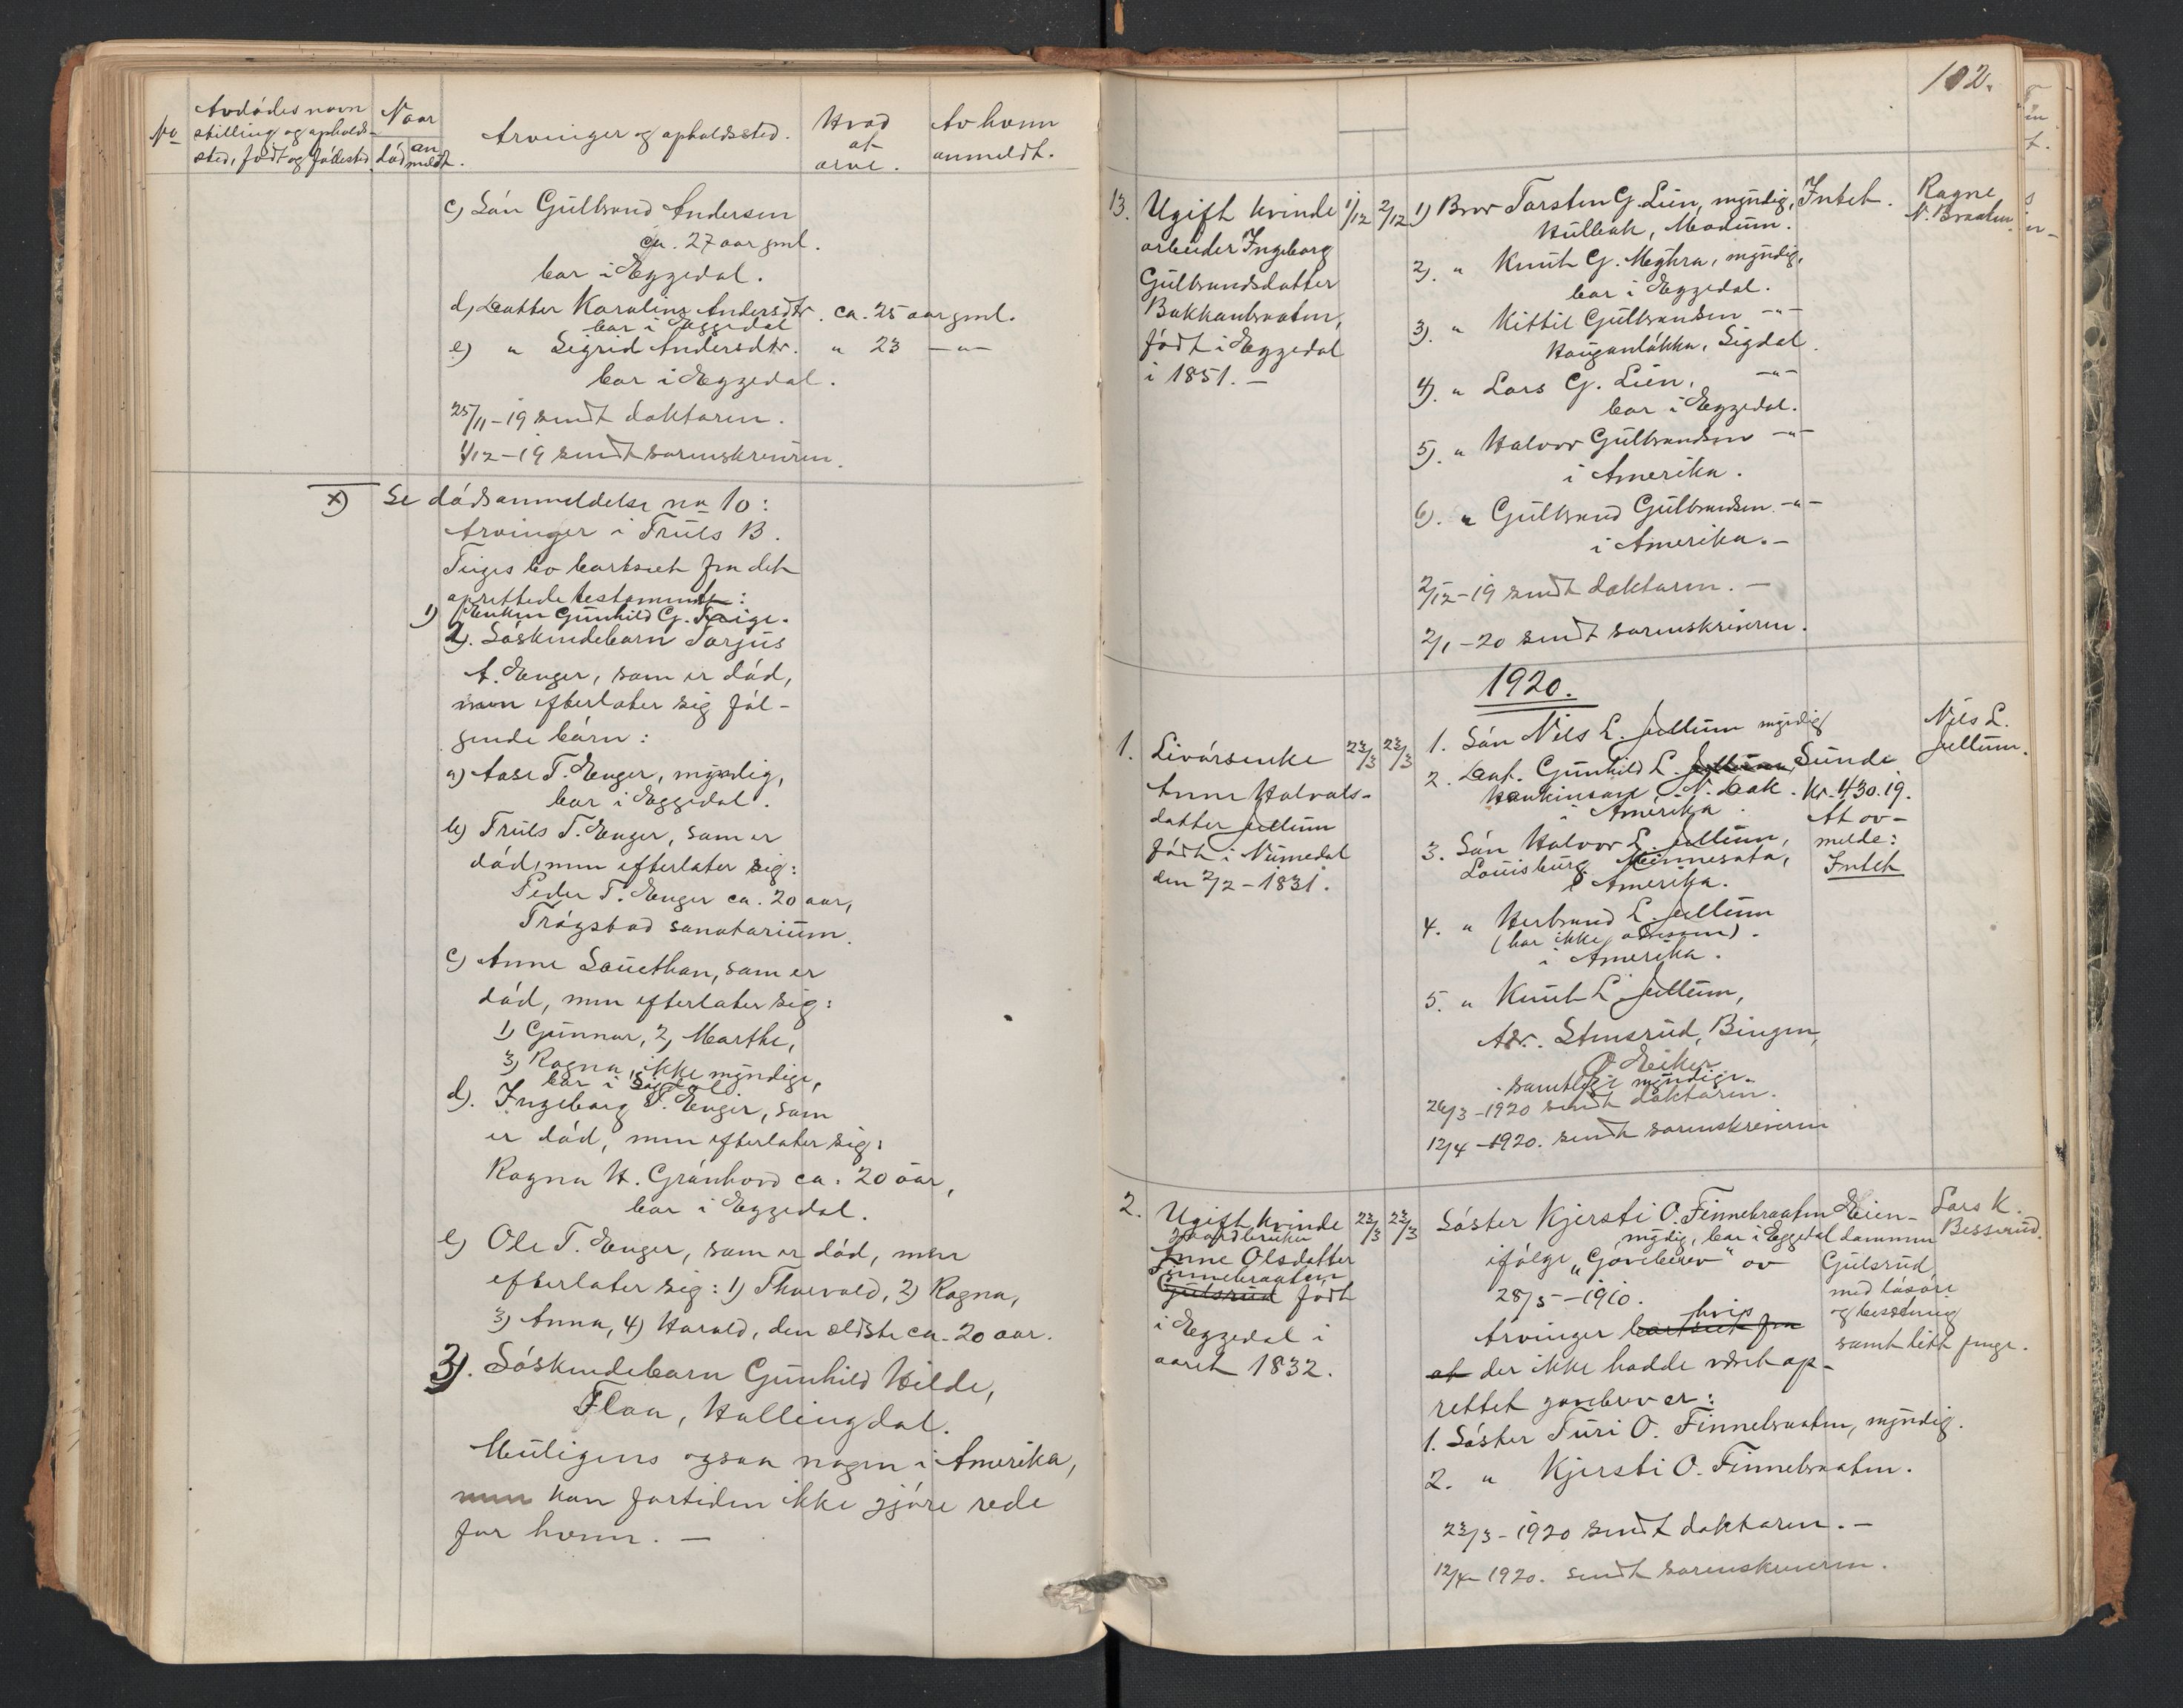 No
Avdødes navn
stilling og opholds-
sted, født og fødested
Naar
død
an
meldt.
Arvinger og opholdssted.
Hvad
at
arve.
Av hvem
anmeldt.
c) Søn Gulbrand Andersen
ca. 27 aar gml.
bor i Eggedal.
d) Datter Karoline Andersdtr. ca. 25 aar gml.
bor i Eggedal
e) " Sigrid Andersdtr. " 23 —"—
bor i Eggedal.
25/11-19 sendt doktoren.
1/12-19 sendt sorenskriveren.
x) Se dødsanmeldelse no 10:
Arvinger i Truls B.
Teiges bo bortseet fra det
oprettede testament:
1) Enken Gunhild G. Teige.
2). Søskendebarn Torjus
A. Enger, som er død,
men efterlater sig føl-
gende børn:
a) Aase T. Enger, myndig,
bor i Eggedal.
b) Truls T. Enger, som er
død, men efterlater sig:
Peder T. Enger ca. 20 aar,
Trøgstad sanatorium.
c) Anne Souethan, som er
død, men efterlater sig:
1) Gunnar, 2) Marthe,
3) Ragna, ikke myndige,
bor i Sigdal
d). Ingeborg T. Enger, som
er død, men efterlater sig:
Ragna H. Grønhovd ca. 20 aar,
bor i Eggedal.
e) Ole T. Enger, som er død, men
efterlater sig: 1) Thorvald, 2) Ragna,
3) Anna, 4) Harald, den ældste ca. 20 aar.
3). Søskendebarn Gunhild Vilde,
Flaa, Hallingdal.
Muligens ogsaa nogen i Amerika,
men kan fortiden ikke gjøre rede
for hvem. —
102.
13. Ugift kvinde
arbeider Ingeborg
Gulbrandsdatter
Bakkanbraaten,
født i Eggedal
i 1851. —
1/12
2/12
1) Bror Torsten G. Lien, myndig,
Hulbak, Modum.
2). " Knut G. Meghra, myndig,
bor i Eggedal.
3). " Kittil Gulbrandsen —"—
Hauganløkka, Sigdal.
4). " Lars G. Lien, —"—
bor i Eggedal.
5). " Halvor Gulbrandsen —"—
i Amerika.
6). " Gulbrand Gulbrandsen —"—
i Amerika. —
2/12-19 sendt doktoren. —
2/1-20 sendt sorenskriveren.
Intet.
Ragne
N. Braaten.
1920.
1. Livørsenke
Anne Halvols-
datter Jellum
født i Numedal
den 2/2-1831.
22/3
22/3
1. Søn Nils L. Jellum myndig
2. Dat. Gunhild L. Jellum, Sunde
Hankinson, N. Dak.
i Amerika.
3. Søn Halvor L. Jellum,
Louisburg, Minnesota,
i Amerika.
4. " Herbrand L. Jellum
(har ikke adressen).
i Amerika.
5. " Knut L. Jellum,
Adr. Stensrud, Bingen,
Ø. Eiker
samtlige myndige.
26/3-1920 sendt doktoren.
12/4-1920. sendt sorenskriveren
Kr. 430.19.
At av-
melde:
Intet
Nils L.
Jellum.
2. Ugift kvinde
gaardbruker
Anne Olsdatter
Finnebraaten
Gulsrud født
i Eggedal i
aaret 1832.
22/3
22/3
Søster Kjersti O. Finnebraaten
myndig, bor i Eggedal
ifølge "Gavebrev" av
28/5-1910.
Arvinger bortseet fra
hvis
at der ikke hadde været op-
rettet gavebrev er:
1. Søster Turi O. Finnebraaten, myndig.
2. " Kjersti O. Finnebraaten.
23/3-1920 sendt doktoren. —
12/4-1920. sendt sorenskriveren.
Eien-
dommen
Gulsrud
med løsøre
og besetning
samt litt penge.
Lars K.
Besserud.